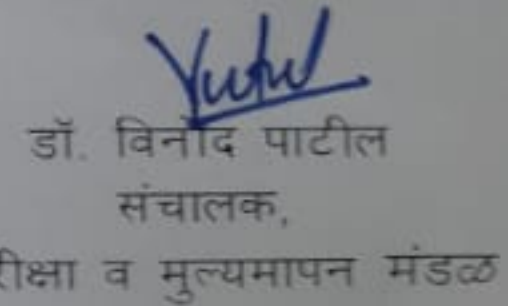 डॉ. विनोद पाटील
संचालक,
रीक्षा व मुल्यमापन मंडळ